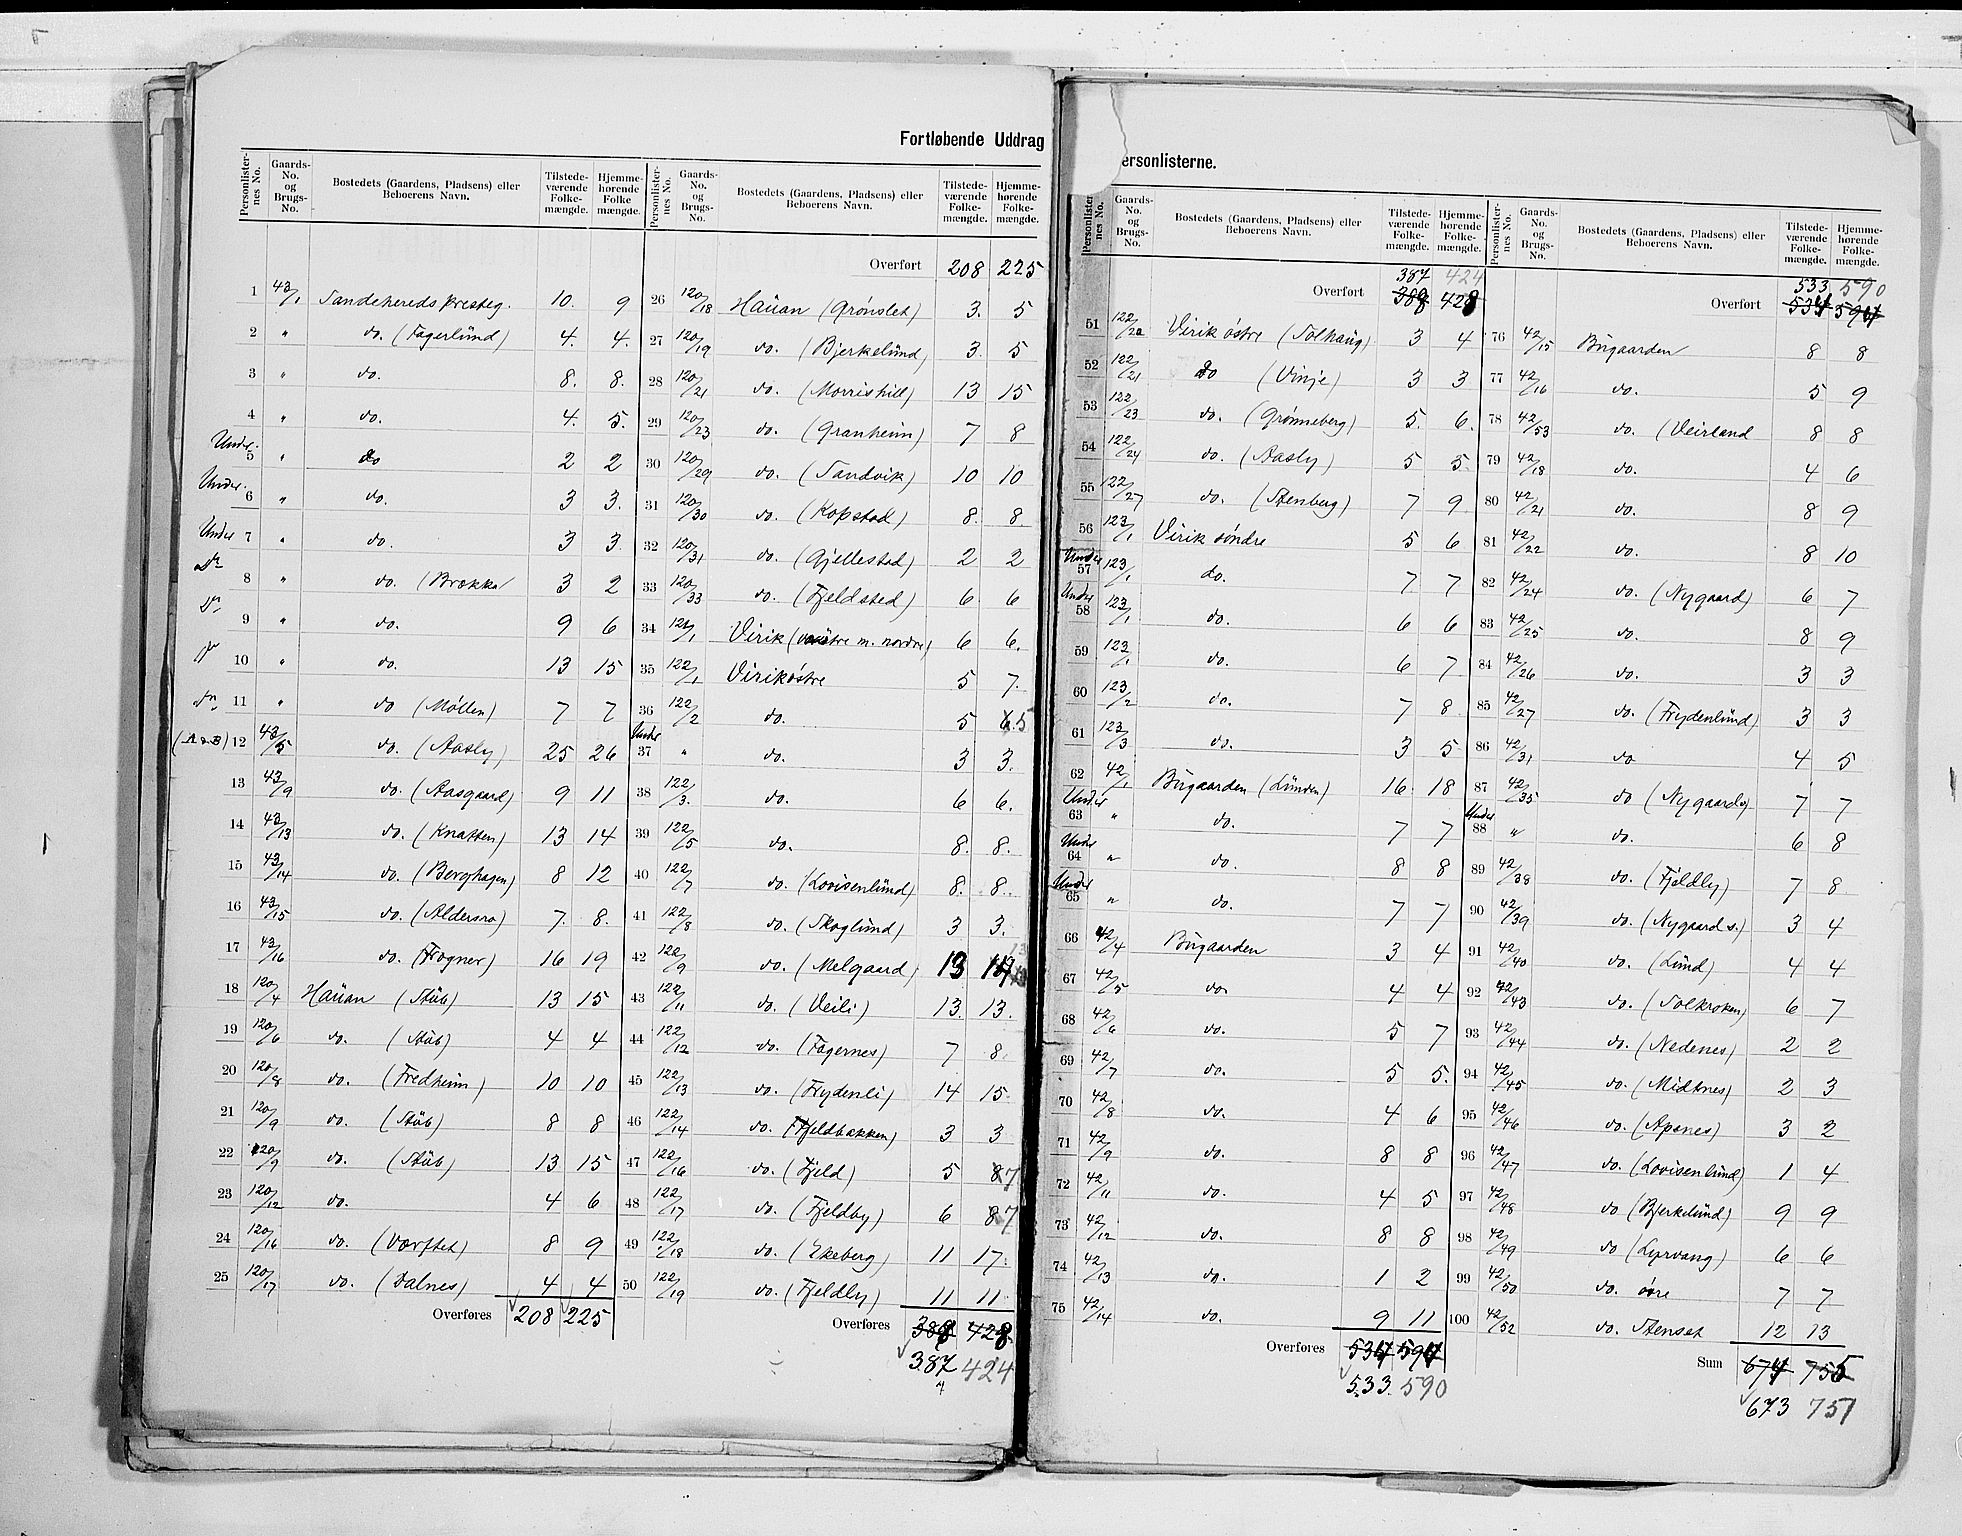 Fortløbende Uddrag
ersonlisterne.
Personlister-nes No. Gaards-No. og Brugs-No. Bostedets (Gaardens, Pladsens) eller Beboerens Navn. Tilstede-værende Folke-mængde. Hjemme-hørende Folke mængde.
1 43/1 Sandehereds presteg. 10. 9
2 " do. (Fagerlund) 4. 4.
3 " do. 8. 8.
4 " do. 4. 5.
Under. 5 " do 2 2
Under. 6 " do. 3 3.
Under 7 " do. 3 3
Do 8 " do. (Brække 3 2
Do 9 " do. 9 6
Do 10 " do. 13 15
Do 11 " do (Møllen) 7 7
(A & B) 12 43/5 do. (Aasly) 25 26
13 43/9 do. (Aasgaard) 9 11
14 43/13 do. (Knatten) 13 14
15 43/14 do. (Berghagen) 8 12
16 43/15 do. (Aldersro) 7. 8.
17 43/16 do. (Frogner) 16 19
18 120/4 Hauan (Stub) 13 15
19 120/6 do. (Stub) 4 4
20 120/8 do. (Fredheim) 10 10
21 120/9 do. (Stub) 8 8
22 120/9 do. (Stub) 13 15
23 120/12 do. 4 6
24 120/16 do. (Værftet) 8 9
25 120/17 do. (Dalnes) 4 4
Overføres 208 225
Personlister-nes No. Gaards-No. og Brugs-No. Bostedets (Gaardens, Pladsens) eller Beboerens Navn. Tilstede-værende Folke-mængde. Hjemme-hørende Folke-mængde.
Overført 208 225
26 120/18 Hauan (Grønslet) 3. 5
27 120/19 do. (Bjerkelund) 3. 5
28 120/21 do. (Morrishill) 13 15
29 120/23 do. (Granheim) 7 8
30 120/29 do. (Sandvik) 10 10
31 120/30 do. (Kopstad) 8. 8
32 120/31 do. (Gjellestad) 2 2
33 120/33 do. (Fjeldsted) 6 6
34 121/1 Virik (østre m. nordre) 6 6.
35 122/1 Virik østre 5 7.
36 122/2 do. 5 5
Under 37 " do. 3 3.
38 122/3. do. 6 6.
39 122/5 do. 8. 8.
40 122/7 do. (Lovisenlund) 8. 8.
41 122/8 do. (Skoglund) 3 3.
42 122/9 do. (Melgaard) 13
43 122/11 do. (Veili) 13. 13.
44 122/12 do. (Fagernes) 7 8.
45 122/13 do. (Frydenli) 14 15.
46 122/14 do. (Fjeldbakken) 3 3
47 122/16 do. (Fjeld) 5 87
48 122/17 do. (Fjeldby) 6 87
49 122/18 do. (Ekeberg) 11 17.
50 122/19 do. (Fjeldly) 11 11
Overføres 388 428
387 424
Personlister nes No. Gaards-No. og Brugs-No. Bostedets (Gaardens, Pladsens) eller Beboerens Navn. Tilstede-værende Folke-mængde. Hjemme-hørende Folke-mængde.
387 424
Overført 388 428
51 122/20 Virik østre (Solhaug) 3 4
52 122/21 do (Vinje) 3 3
53 122/23 do. (Grønneberg) 5. 6.
54 122/24 do. (Aasly) 5 5
55 122/27 do. (Stenberg) 7 9
56 123/1 Virik søndre 5 6
Under 57 123/1 do. 7 7
Under 58 123/1 do. 6 6
59 123/1 do. 6 7
60 123/2 do. 7 8
61 123/3 do. 3 5
62 42/1 Bugaarden (Lunden) 16 18
Under 63 " do. 7 7
Under 64 " do. 8 8
Under 65 " do. 7 7
66 42/4 Bugaarden 3 4
67 42/5 do. 4 4
68 42/6 do. 5 7
69 42/7 do. 5 5.
70 42/8 do. 4 6
71 42/9 do. 8 8
72 42/11 do. 4 5
73 42/12 do. 8 8
74 42/13 do. 1 2
75 42/14 do. 9 11
Overføres 534 594
533. 590
Personlister-nes No. Gaards-No. og Brugs-No. Bostedets (Gaardens, Pladsens) eller Beboerens Navn. Tilstede-værende Folke-mængde. Hjemme-hørende Folke-mængde.
533 590
Overført 534 594
76 42/15 Bugaarden 8 8
77 42/16 do. 5 9
78 42/53 do. (Veirland 8 8
79 42/18 do. 4 6
80 42/21 do. 8 9
81 42/22 do. 8 10
82 42/24 do. (Nygaard) 6 7
83 42/25 do. 8 9
84 42/26 do. 3 3
85 42/27 do. (Frydenlund) 3 3
86 42/31 do 4 5
87 42/35 do (Nygaards) 7 7
Under 88 " do. 6 8
89 42/38 do. (Fjeldly) 7 8
90 42/39 do. (Nygaard s.) 3 4
91 42/40 do. (Lund) 4 4
92 42/43 do. (Solkroken) 6 7
93 42/44 do. (Nedenes) 2 2
94 42/45 do. (Midtnes) 2 3
95 42/46 do. (Apenes) 3 2
96 42/47 do. (Lovisenlund) 1 4
97 42/48 do (Bjerkelund) 9 9
98 42/49 do (Lyrvang) 6 6
99 42/50 do. øvre 7 7
100 42/52 do. Stenset 12 13
Sum 674 755
673 751